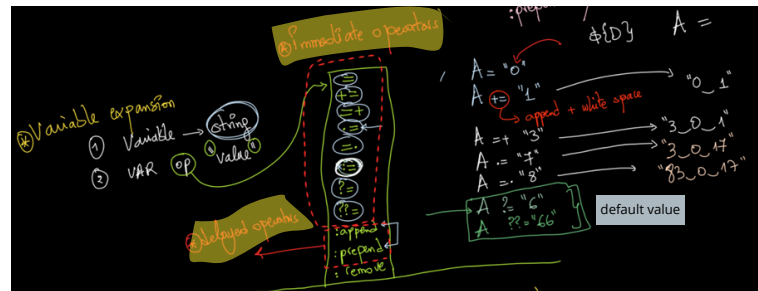 :prepend
${D} A =
* Immediate operators
* Variable expansion
1 Variable → string
2 VAR op "value"
=
+=
=+
.=
=.
:=
?=
??=
:append
:prepend
:remove
* delayed operators
A = "0"
A += "1" "0_1"
append + white space
A =+ "3" "3_0_1"
A .= "7" "3_0_17"
A =. "8" "83_0_17"
A ?= "6"
A ??= "66"
default value